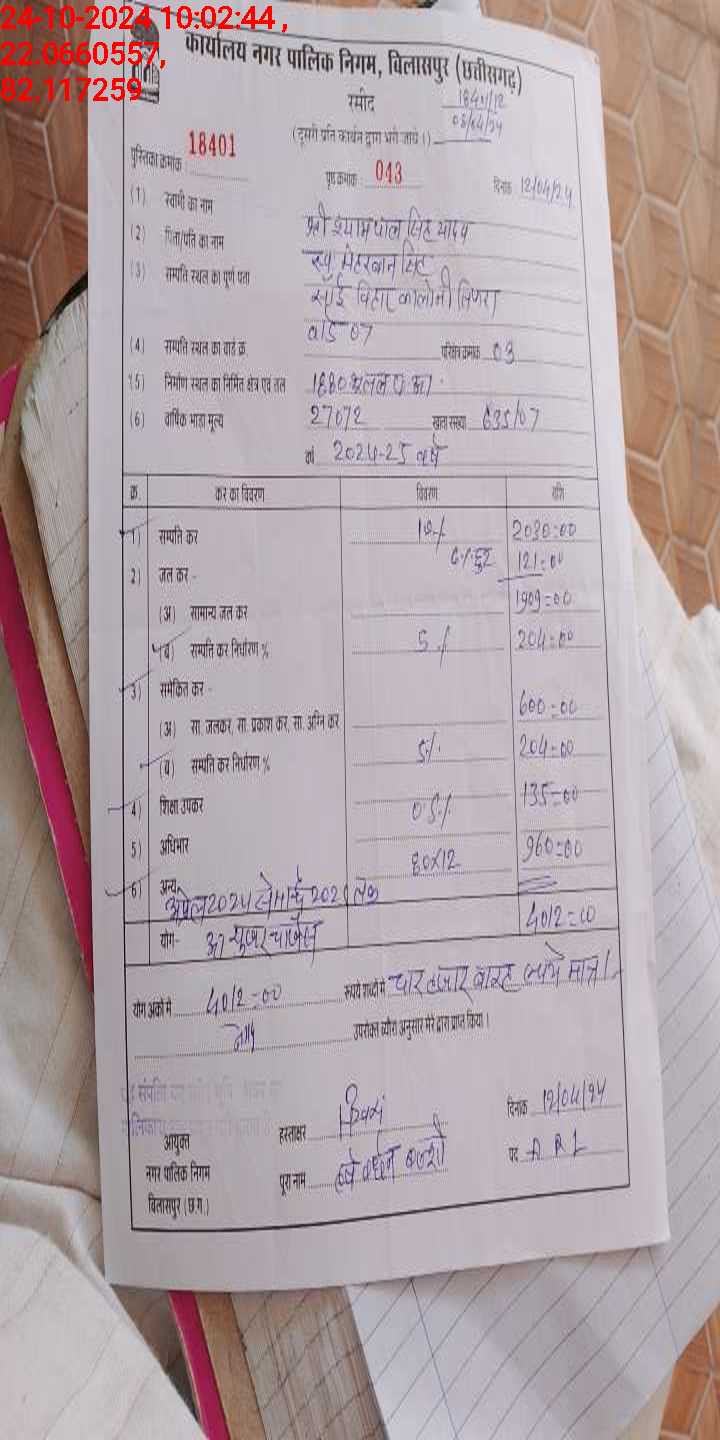 24-10-2024 10:02:44 ,
22.0660557,
82.117259
कार्यालय नगर पालिक निगम, बिलासपुर (छत्तीसगढ़)
रसीद 18401/12
(दूसरी प्रति कार्बन द्वारा भरी जाये।) 03/04/24
पुस्तिका क्रमांक 18401 पृष्ठ क्रमांक 043 दिनांक 12/04/24
(1) स्वामी का नाम श्री श्यामपाल सिंह यादव
(2) पिता/पति का नाम स्व. मेहरबान सिंह
(3) सम्पत्ति स्थल का पूर्ण पता साँई विहार कालोनी
वार्ड 07
(4) सम्पत्ति स्थल का वार्ड क्र. परिक्षेत्र क्रमांक 03
(5) निर्माण स्थल का निर्मित क्षेत्र एवं तल 1880
(6) वार्षिक भाड़ा मूल्य 27072 खाता संख्या 635/07
वर्ष 2024-25 वर्ष
क्र. कर का विवरण विवरण राशि
1) सम्पत्ति कर 10% 2030=00
6% छूट 121=00
2) जल कर - 1909=00
(अ) सामान्य जल कर
(ब) सम्पत्ति कर निर्धारण % 5% 204=00
3) समेकित कर -
(अ) सा. जलकर, सा. प्रकाश कर, सा. अग्नि कर 600=00
(ब) सम्पत्ति कर निर्धारण % 5% 204=00
4) शिक्षा उपकर 0.5% 135=00
5) अधिभार 80x12 960=00
6) अन्य
अप्रैल 2024 से मार्च 202 तक
योग- का यूजर चार्जेस 4012=00
योग अंकों में 4012=00 रूपये शब्दों में चार हजार बारह रूपये मात्र।
उपरोक्त ब्यौरा अनुसार मेरे द्वारा प्राप्त किया।
आयुक्त हस्ताक्षर दिनांक 12/04/24
नगर पालिक निगम पूरा नाम हर्ष वर्धन पद A R I
बिलासपुर (छ.ग.)